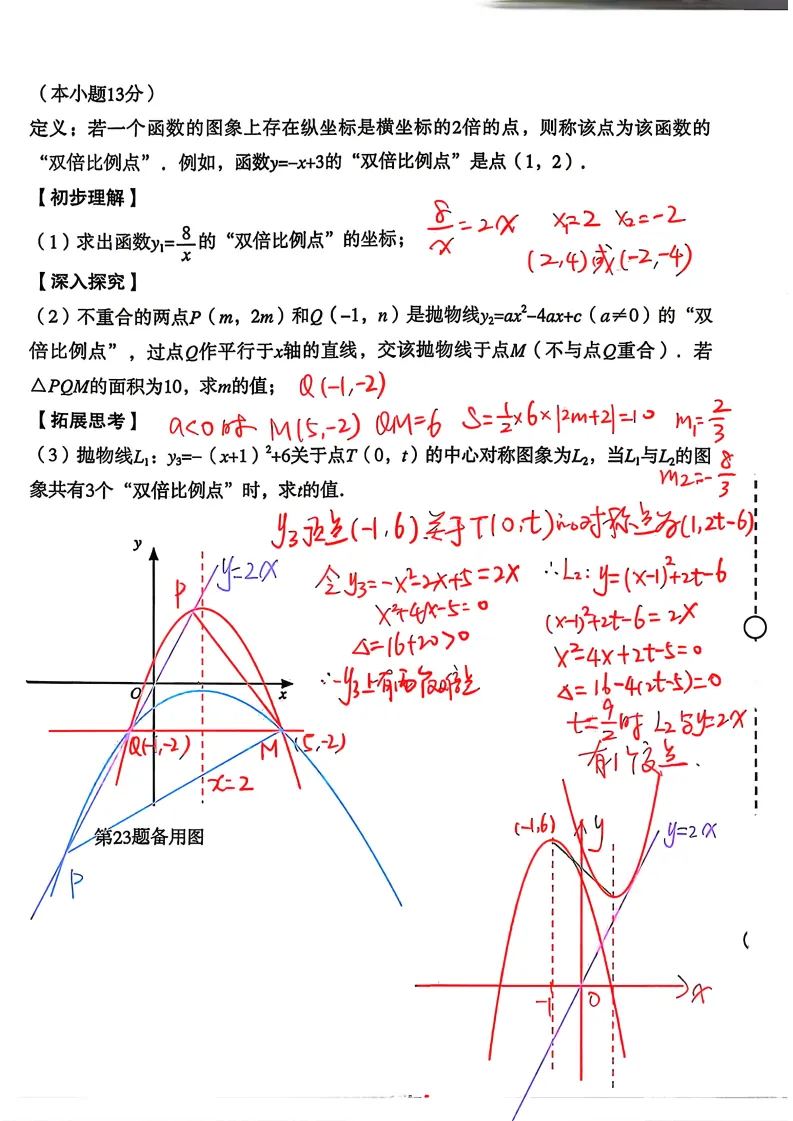 （本小题13分）
定义；若一个函数的图象上存在纵坐标是横坐标的2倍的点，则称该点为该函数的
“双倍比例点”．例如，函数y=-x+3的“双倍比例点”是点（1，2）.
【初步理解】
（1）求出函数y₁=8/x的“双倍比例点”的坐标；
8/x=2x x₁=2 x₂=-2
(2,4)或(-2,-4)
【深入探究】
（2）不重合的两点P（m，2m）和Q（-1，n）是抛物线y₂=ax²-4ax+c（a≠0）的“双
倍比例点”，过点Q作平行于x轴的直线，交该抛物线于点M（不与点Q重合）．若
△PQM的面积为10，求m的值；
Q(-1,-2)
【拓展思考】
a<0时 M(5,-2) QM=6 S=1/2×6×|2m+2|=10 m₁=2/3
m₂=-8/3
（3）抛物线L₁：y₃=-（x+1）²+6关于点T（0，t）的中心对称图象为L₂，当L₁与L₂的图
象共有3个“双倍比例点”时，求t的值.
y₃顶点(-1,6)关于T(0,t)的对称点为(1,2t-6)
令y₃=-x²-2x+5=2x
x²+4x-5=0
Δ=16+20>0
∴y₃上有两个双倍点
∴L₂:y=(x-1)²+2t-6
(x-1)²+2t-6=2x
x²-4x+2t-5=0
Δ=16-4(2t-5)=0
t=9/2时 L₂与y=2x
有1个交点.
y
y=2x
P
O
x
Q(-1,-2)
M(5,-2)
x=2
第23题备用图
P
(-1,6)
y
y=2x
-1
0
x
(